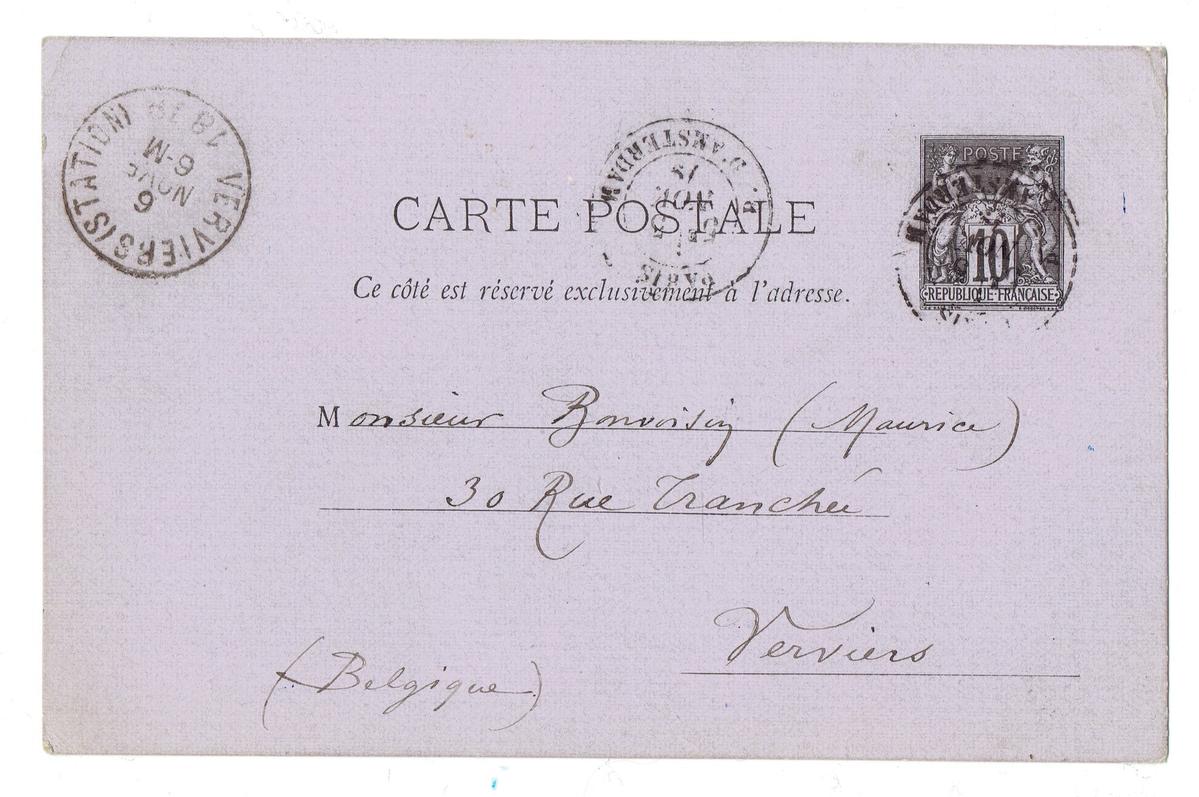 VERVIERS (STATION)
6
NOVE
6-M
R. D'AMSTERDAM
PARIS
POSTE
10
REPUBLIQUE FRANÇAISE
CARTE POSTALE
Ce côté est réservé exclusivement à l'adresse.
Monsieur Bonvoisin (Maurice)
30 Rue Tranchée
Verviers
(Belgique)